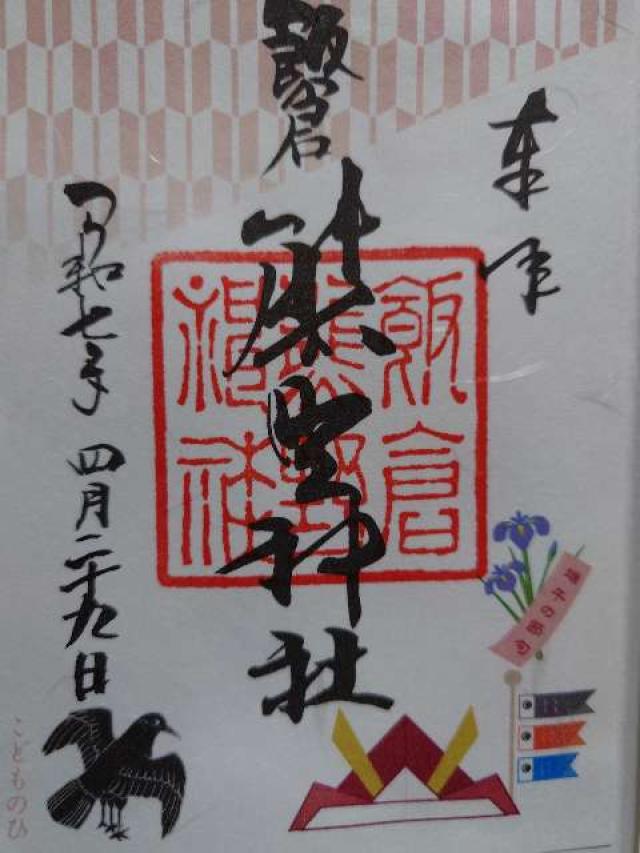 奉拝
飯倉
熊野神社
飯倉
熊野
神社
令和七年 四月二十九日
端午の節句
こどものひ